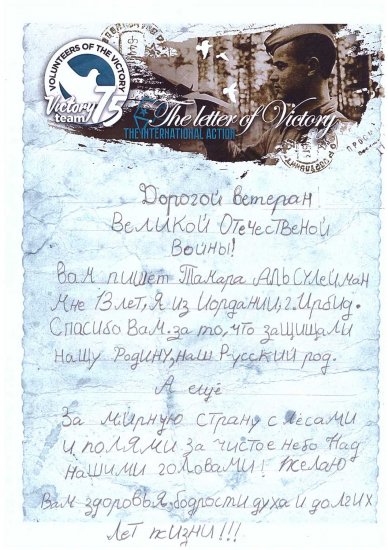 VOLUNTEERS OF THE VICTORY
Victory 75
team
The letter of Victory
THE INTERNATIONAL ACTION
Дорогой ветеран
Великой Отечественой
Войны!
Вам пишет Тамара Альсулейман
Мне 13 лет, Я из Иордании, г. Ирбид.
Спасибо Вам за то, что защищали
нашу Родину, наш Русский род.
А ещё
За мирную страну с лесами
и полями за чистое небо Над
нашими головами! Желаю
Вам здоровья, бодрости духа и долгих
лет жизни!!!